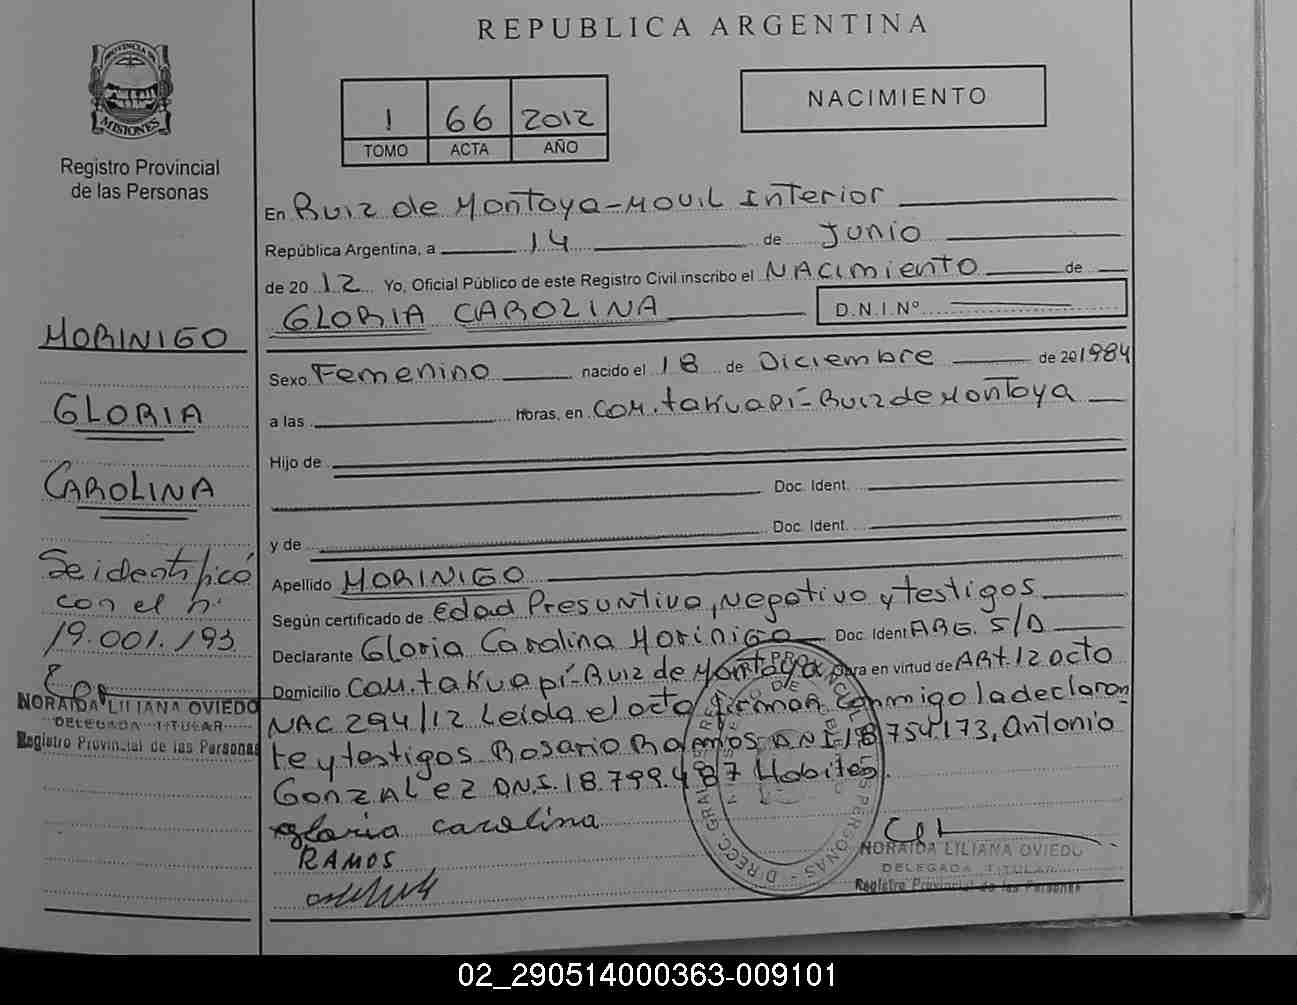 REPUBLICA ARGENTINA
PROVINCIA DE
MISIONES
Registro Provincial
de las Personas
1 66 2012
TOMO ACTA AÑO
NACIMIENTO
En Ruiz de Montoya-Movil Interior
República Argentina, a 14 de Junio
de 2012 Yo, Oficial Público de este Registro Civil inscribo el NAcimiento de
GLORIA CAROLINA D.N.I.Nº
Sexo Femenino nacido el 18 de Diciembre de 201984
a las horas, en Com.takuapí-Ruiz de Montoya
Hijo de
Doc. Ident.
y de Doc. Ident.
Apellido MORINIGO
Según certificado de Edad Presuntiva, Negativo y testigos
Declarante Gloria Carolina Morinigo Doc. Ident ARG. S/D
Domicilio Com.takuapí-Ruiz de Montoya para en virtud de ARt.12 acto
NAC 294/12 Leída el acta firman conmigo la declaran
te y testigos Rosario Ramos DNI 18754173, Antonio
GonzALez DN.I.18.799.487 Habiles.
gloria carolina
RAMOS
NORAIDA LILIANA OVIEDO
DELEGADA TITULAR
Registro Provincial de las Personas
MORINIGO
GLORIA
CAROLINA
Se identificó
con el n.
19.001.193
NORAIDA LILIANA OVIEDO
DELEGADA TITULAR
Registro Provincial de las Personas
02_290514000363-009101